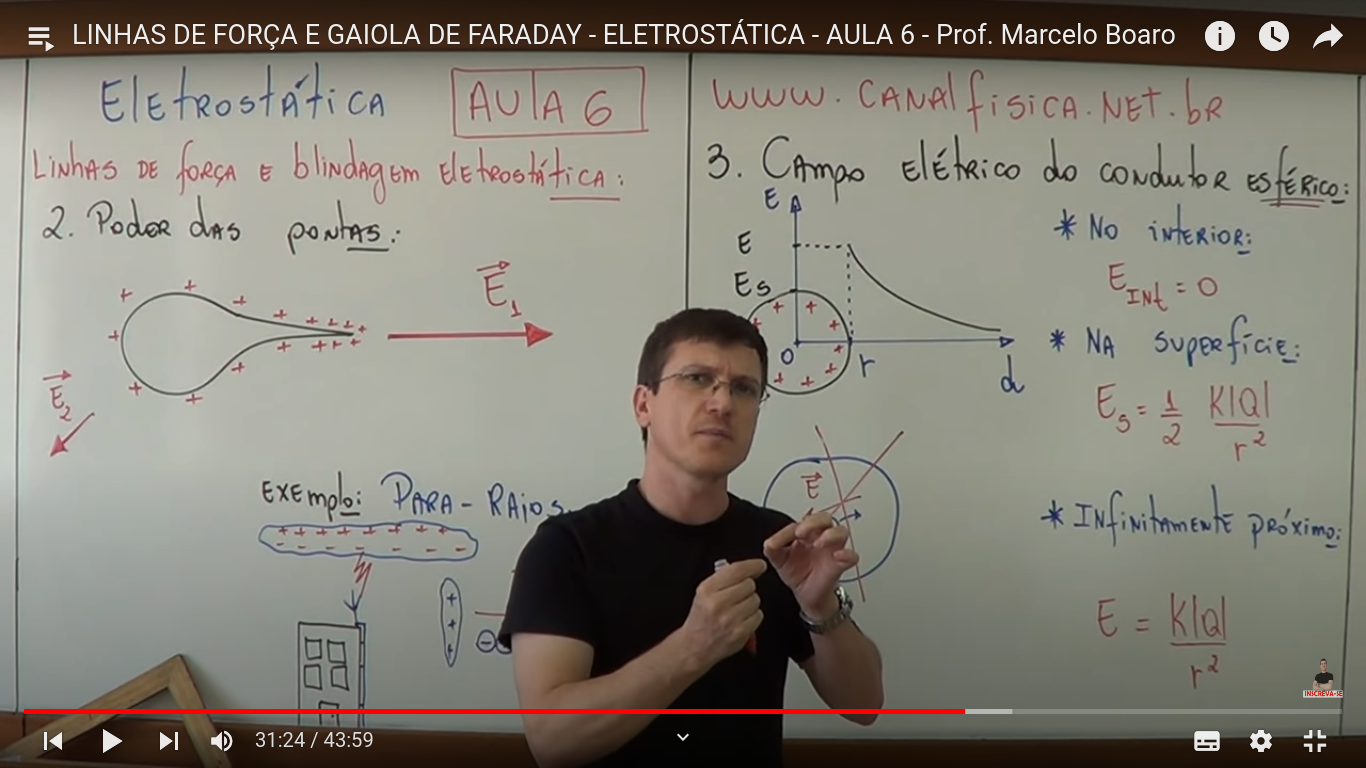 LINHAS DE FORÇA E GAIOLA DE FARADAY - ELETROSTÁTICA - AULA 6 - Prof. Marcelo Boaro
Eletrostática
AULA 6
Linhas de força e blindagem eletrostática:
2. Poder das pontas:
E₁
E₂
Exemplo: Para-raios
www.canalfisica.net.br
3. Campo elétrico do condutor esférico:
E
E
Es
0
r
d
E
* No interior:
E Int = 0
* Na superfície:
Es = 1/2 K|Q|/r²
* Infinitamente próximo:
E = K|Q|/r²
INSCREVA-SE
31:24 / 43:59